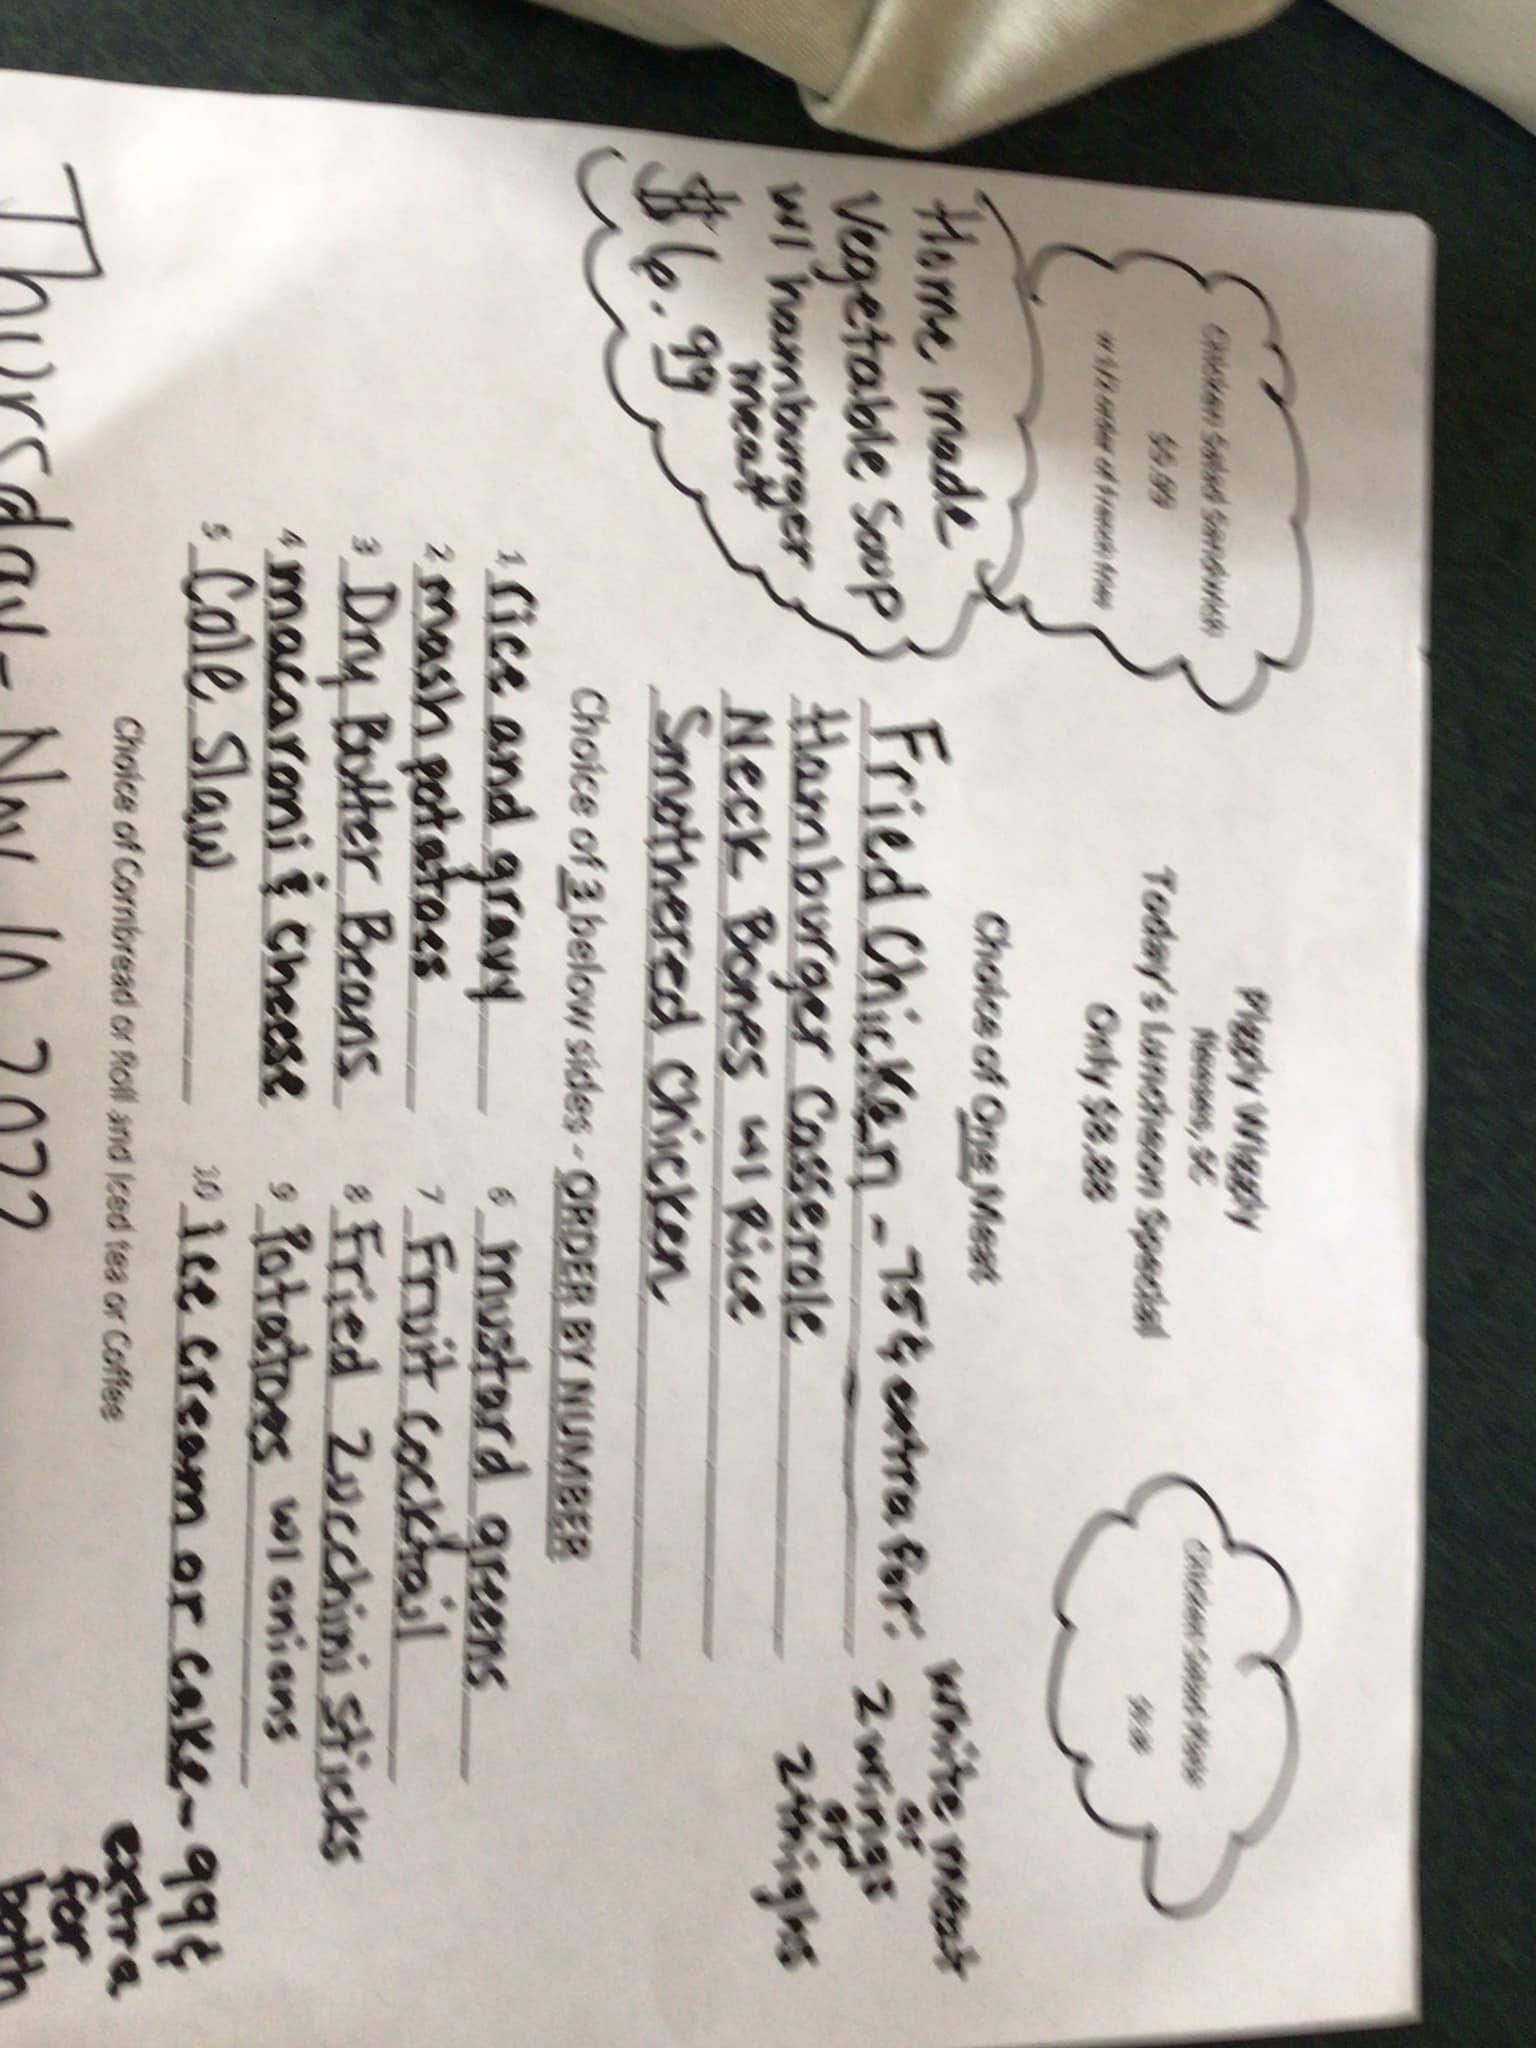 Piggly Wiggly
Neeses, SC
Today's Luncheon Special
Only $8.88
Chicken Salad Sandwich
$5.99
w 1/2 order of french fries
Chicken Salad Plate
Home made
Vegetable Soup
w/ hamburger
meat
$6.99
Choice of One Meat
Fried Chicken - 75¢ extra for: white meat
or
2 wings
or
2 thighs
Hamburger Casserole
Neck Bones w/ Rice
Smothered Chicken
Choice of 3 below sides - ORDER BY NUMBER
1 rice and gravy
2 mash potatoes
3 Dry Butter Beans
4 macaroni & cheese
5 Cole Slaw
6 mustard greens
7 Fruit Cocktail
8 Fried Zucchini Sticks
9 Potatoes w/ onions
10 Ice cream or cake - 99¢
extra
for
both
Choice of Cornbread or Roll and Iced tea or Coffee
Thursday - Nov 10 2022